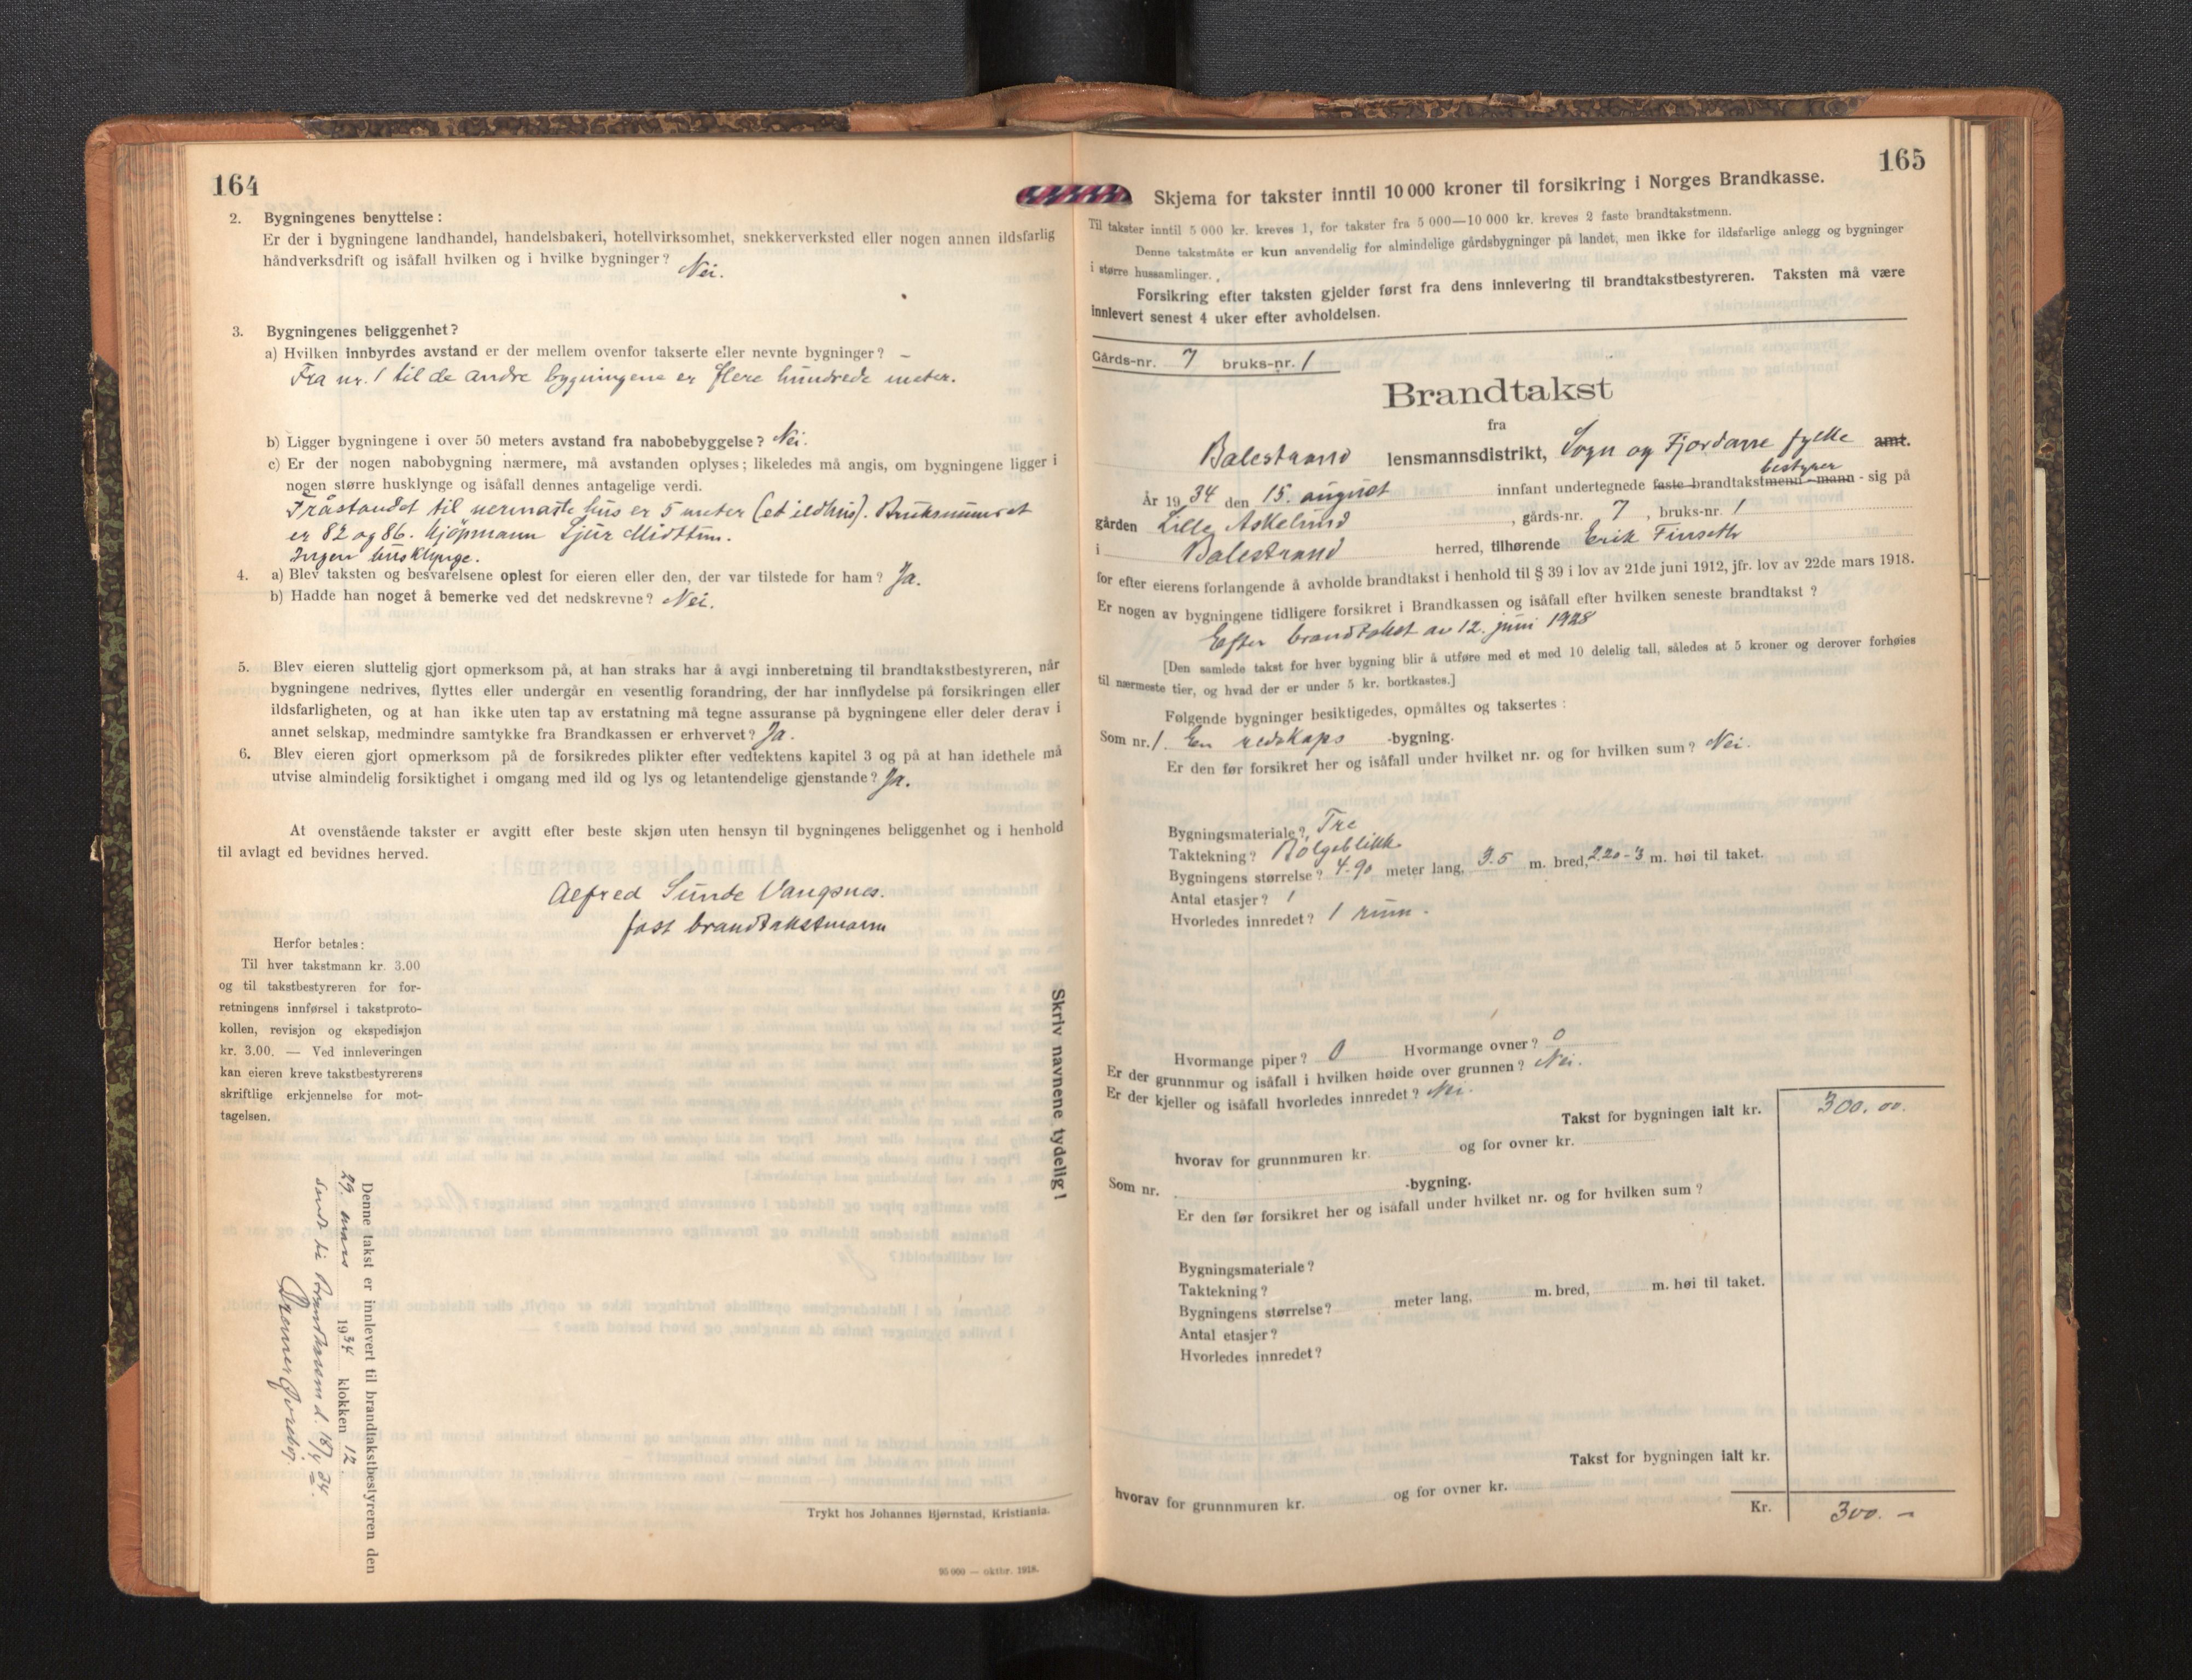 164
2. Bygningenes benyttelse :
Er der i bygningene landhandel, handelsbakeri, hotellvirksomhet, snekkerverksted eller nogen annen ildsfarlig
håndverksdrift og isåfall hvilken og i hvilke bygninger? Nei.
3. Bygningenes beliggenhet?
a) Hvilken innbyrdes avstand er der mellem ovenfor takserte eller nevnte bygninger? –
Fra nr. 1 til de andre bygningene er flere hundrede meter.
b) Ligger bygningene i over 50 meters avstand fra nabobebyggelse? Nei.
c) Er der nogen nabobygning nærmere, må avstanden oplyses; likeledes må angis, om bygningene ligger i
nogen større husklynge og isåfall dennes antagelige verdi.
Fråstandet til nermaste hus er 5 meter (et ildhus). Bruksnumret
er 82 og 86. Kjøpmann Sjur Midttun.
Ingen husklynge.
4. a) Blev taksten og besvarelsene oplest for eieren eller den, der var tilstede for ham? Ja.
b) Hadde han noget å bemerke ved det nedskrevne? Nei.
5. Blev eieren sluttelig gjort opmerksom på, at han straks har å avgi innberetning til brandtakstbestyreren, når
bygningene nedrives, flyttes eller undergår en vesentlig forandring, der har innflydelse på forsikringen eller
ildsfarligheten, og at han ikke uten tap av erstatning må tegne assuranse på bygningene eller deler derav i
annet selskap, medmindre samtykke fra Brandkassen er erhvervet? Ja.
6. Blev eieren gjort opmerksom på de forsikredes plikter efter vedtektens kapitel 3 og på at han idethele må
utvise almindelig forsiktighet i omgang med ild og lys og letantendelige gjenstande? Ja.
At ovenstående takster er avgitt efter beste skjøn uten hensyn til bygningenes beliggenhet og i henhold
til avlagt ed bevidnes herved.
Alfred Sunde Vangsnes.
fast brandtakstmann
Herfor betales:
Til hver takstmann kr. 3.00
og til takstbestyreren for for-
retningens innførsel i takstproto-
kollen, revisjon og ekspedisjon
kr. 3.00. — Ved innleveringen
kan eieren kreve takstbestyrerens
skriftlige erkjennelse for mot-
tagelsen.
Skriv navnene tydelig!
Denne takst er innlevert til brandtakstbestyreren den
29. mars 1934 klokken 12.
sendt til Brandkassen d. 18/4 34.
Trykt hos Johannes Bjørnstad, Kristiania.
95 000 — oktbr. 1918.
165
Skjema for takster inntil 10 000 kroner til forsikring i Norges Brandkasse.
Til takster inntil 5 000 kr. kreves 1, for takster fra 5 000—10 000 kr. kreves 2 faste brandtakstmenn.
Denne takstmåte er kun anvendelig for almindelige gårdsbygninger på landet, men ikke for ildsfarlige anlegg og bygninger
i større hussamlinger.
Forsikring efter taksten gjelder først fra dens innlevering til brandtakstbestyreren. Taksten må være
innlevert senest 4 uker efter avholdelsen.
Gårds-nr. 7 bruks-nr. 1
Brandtakst
fra
Balestrand lensmannsdistrikt, Sogn og Fjordane fylke amt.
bestyrer
År 1934 den 15. august innfant undertegnede faste brandtakstmenn -mann - sig på
gården Lille Askelund, gårds-nr. 7, bruks-nr. 1
i Balestrand herred, tilhørende Erik Finseth
for efter eierens forlangende å avholde brandtakst i henhold til § 39 i lov av 21de juni 1912, jfr. lov av 22de mars 1918.
Er nogen av bygningene tidligere forsikret i Brandkassen og isåfall efter hvilken seneste brandtakst?
Efter brandtakst av 12. juni 1928
[Den samlede takst for hver bygning blir å utføre med et med 10 delelig tall, således at 5 kroner og derover forhøies
til nærmeste tier, og hvad der er under 5 kr. bortkastes.]
Følgende bygninger besiktigedes, opmåltes og taksertes :
Som nr. 1. En redskaps -bygning.
Er den før forsikret her og isåfall under hvilket nr. og for hvilken sum? Nei.
Bygningsmateriale? Tre
Taktekning? Bølgeblikk.
Bygningens størrelse? 4.90 meter lang, 3.5 m. bred, 2.20-3 m. høi til taket.
Antal etasjer? 1
Hvorledes innredet? 1 rum.
Hvormange piper? 0 Hvormange ovner? 0
Er der grunnmur og isåfall i hvilken høide over grunnen? Nei.
Er der kjeller og isåfall hvorledes innredet? Nei.
Takst for bygningen ialt kr. 300.00.
hvorav for grunnmuren kr. og for ovner kr.
Som nr. -bygning.
Er den før forsikret her og isåfall under hvilket nr. og for hvilken sum?
Bygningsmateriale?
Taktekning?
Bygningens størrelse? meter lang, m. bred, m. høi til taket.
Antal etasjer?
Hvorledes innredet?
Takst for bygningen ialt kr.
hvorav for grunnmuren kr. og for ovner kr.
Kr. 300. –